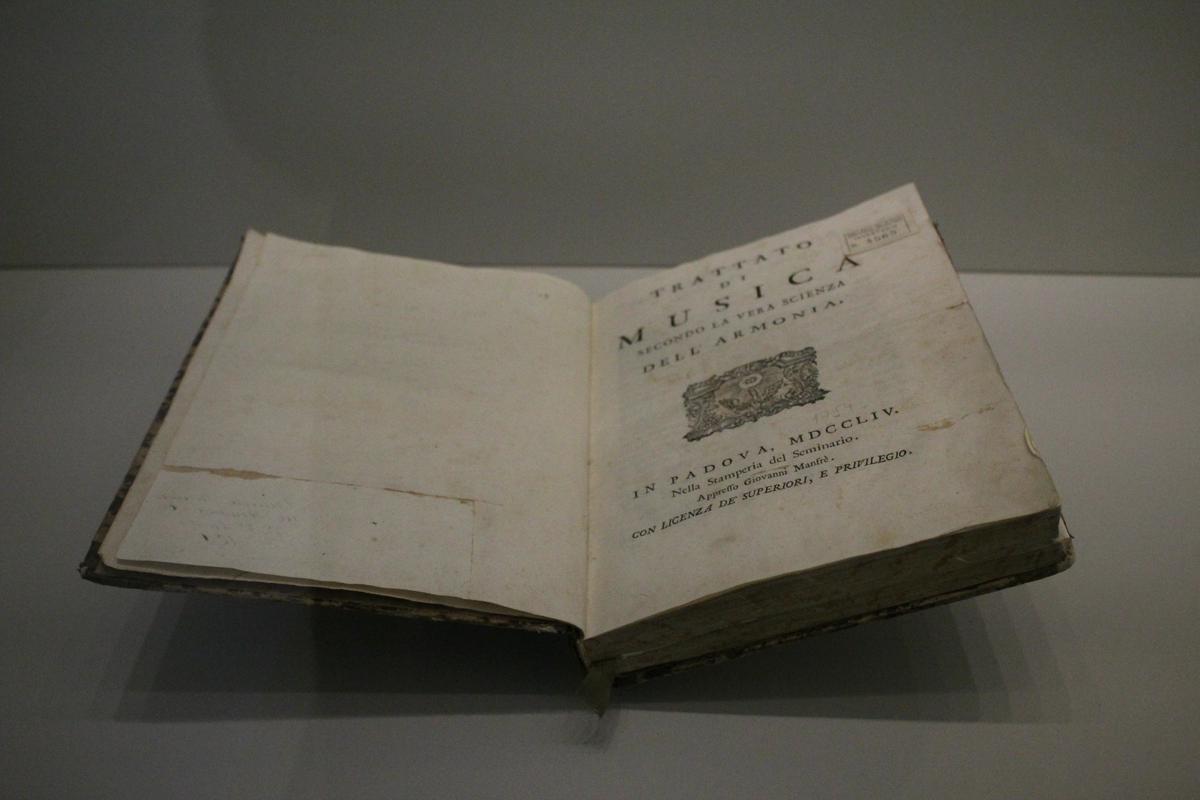 TRATTATO
DI
MUSICA
SECONDO LA VERA SCIENZA
DELL' ARMONIA.
IN PADOVA, MDCCLIV.
Nella Stamperia del Seminario.
Appresso Giovanni Manfrè.
CON LICENZA DE' SUPERIORI, E PRIVILEGIO.